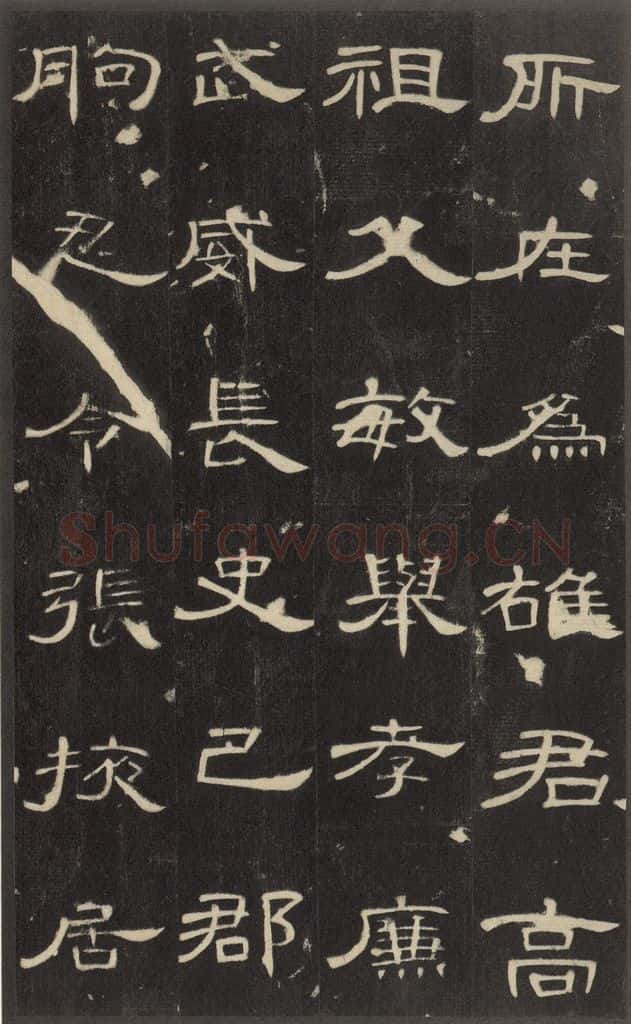 所在為雄君高
祖父敏舉孝廉
武威長史巴郡
朐忍令張掖居
Shufawang.CN